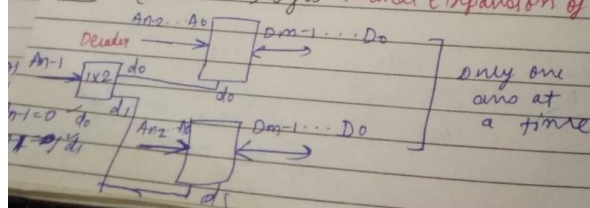 expansion of
An-2 ... A0
Dm-1 ... D0
Decoder
An-1
1x2
d0
d0
only one
ans at
a time
n-1=0 d0
d1
An-2 .. A0
Dm-1 ... D0
d1
d1